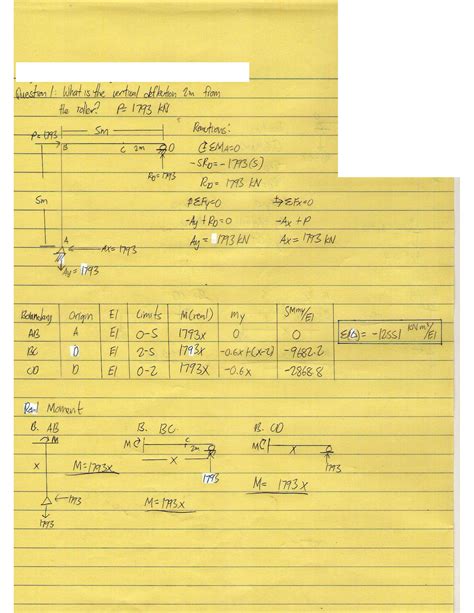 Question 1: What is the vertical deflection 2m from
the roller? P= 1793 KN
P=1793
5m
B
C
2m
D
RD=1793
5m
A
Ax=1793
Ay=1793
Reactions:
ΣMA=0
-5RD=-1793(5)
RD= 1793 KN
ΣFy=0
-Ay+RD=0
Ay= 1793 KN
ΣFx=0
-Ax+P
Ax= 1793 KN
Boundary Origin EI Limits M(real) my SMmy/EI
AB A EI 0-5 1793x 0 0
BC D EI 2-5 1793x -0.6x+(x-2) -9682.2
CD D EI 0-2 1793x -0.6x -2868.8
= -12551 KNm³/EI
Real Moment
B. AB
M
x
M=1793x
1793
1793
B. BC
M
C
2m
x
1793
M=1793x
B. CD
M
x
1793
M= 1793x